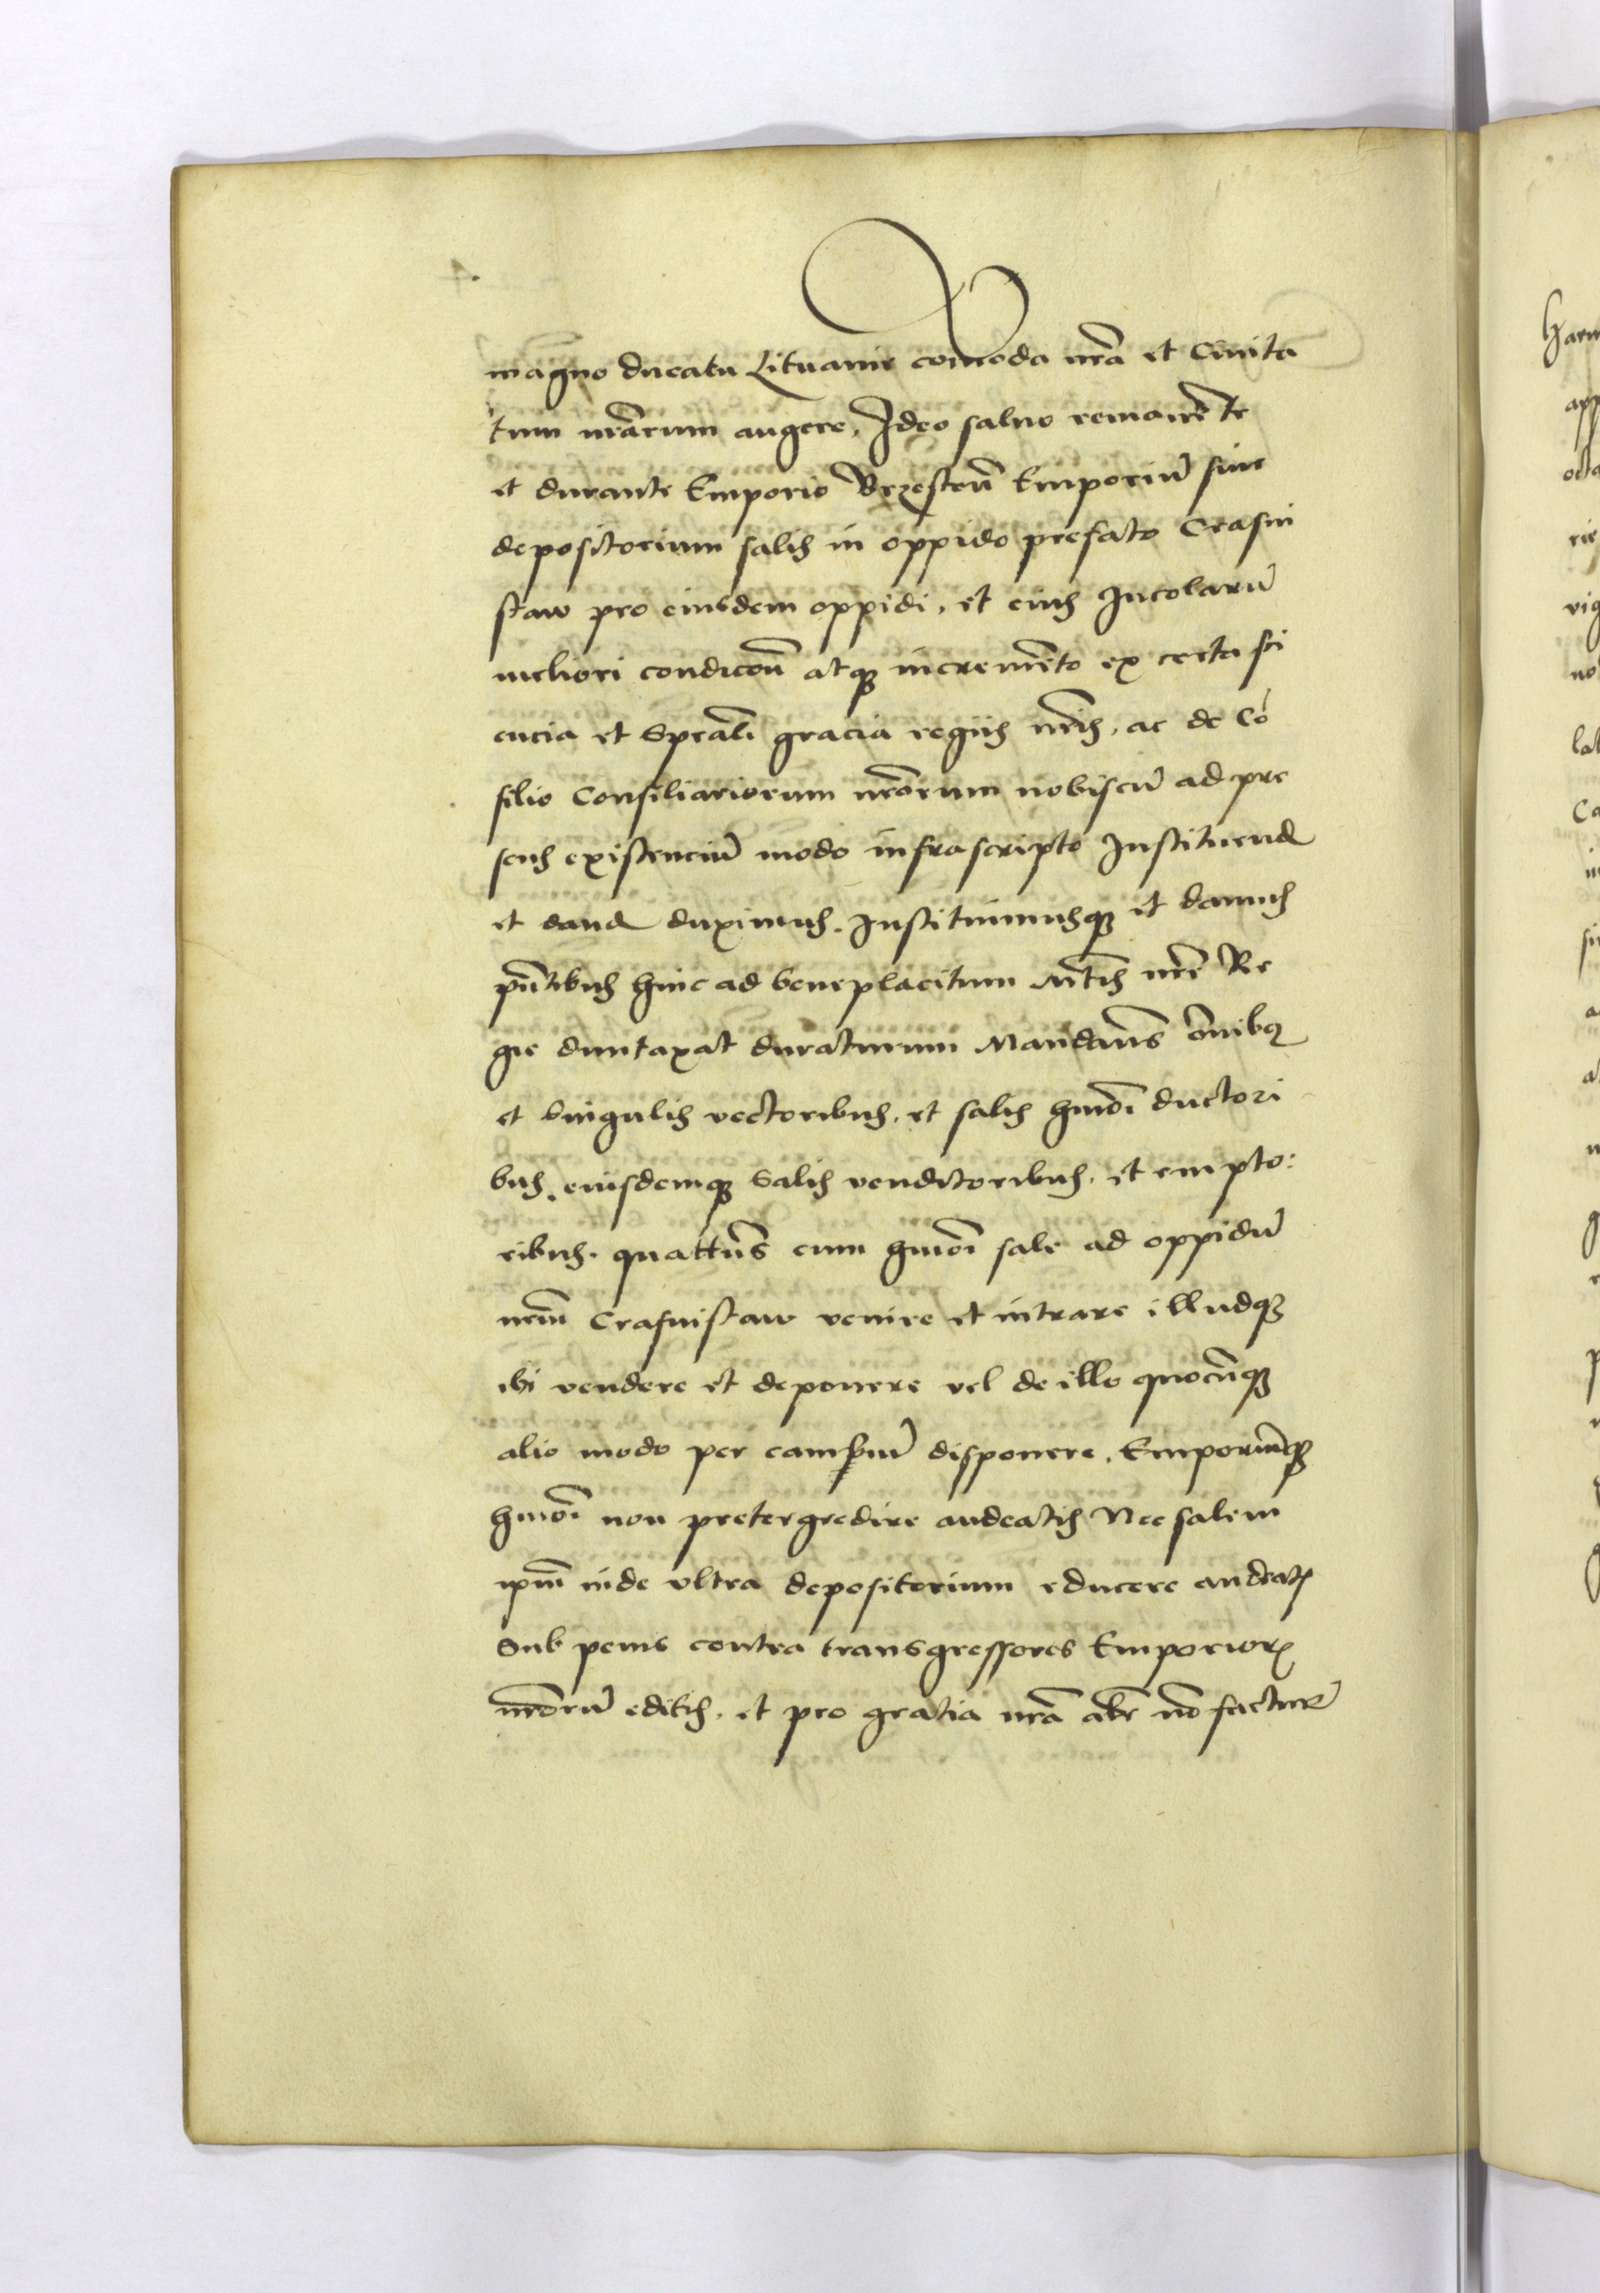 magno ducatu Lituanie comoda nrã et Ciuita
tum nrãrum augere, Ideo saluo remanẽte
et durante Emporio Brzesteñ Emporiũ siue
depositorium salis in oppido prefato Crasni
staw pro eiusdem oppidi, et eius Incolarũ
meliori condicoñ atq incremẽto ex certa sci
encia et Speáli gracia regiis nrĩs, ac de Cõ
silio Consiliariorum nrõrum nobiscũ ad pre
sens existenciũ modo infrascripto Instituend
et dand duximus. Instituimusq et damus
pñtibus huic ad beneplacitum Mtĩs nrẽ Re
gie duntaxat duraturum Mandañs oĩnibq
et Singulis vectoribus, et salis hmõi ductori
bus, eiusdemq Salis venditoribus, et empto:
ribus. quatteñs cum hmõi sale ad oppidũ
nrm̃ Crasnistaw venire et intrare illudq
ibi vendere et deponere vel de illo quocũq
alio modo per campsiũ disponere, Emporiũq
hmõi non pretergredire audeatis Nec salem
ipm̃ inde vltra depositorium educere audeatis
Sub penis contra transgressores Emporiorꝝ
nrõrũ editis. et pro gratia nrã alr̃ nõ facturr̃